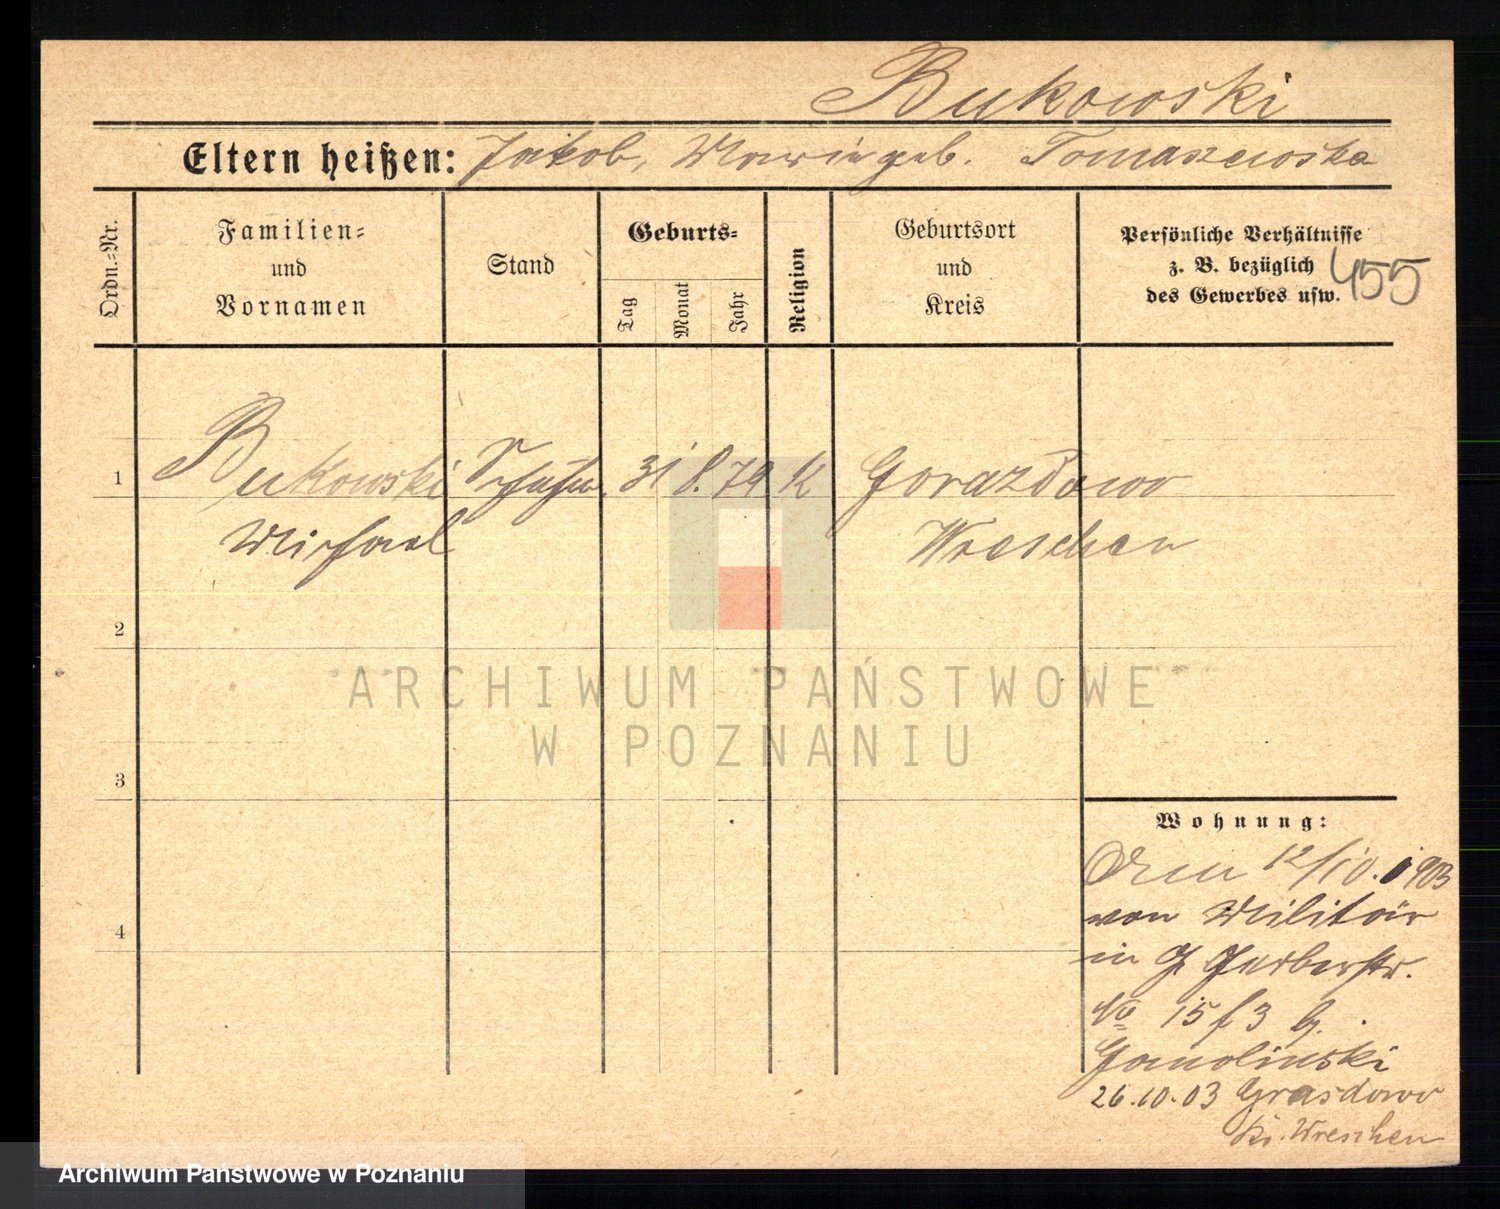 Bukowski
Eltern heißen: Jakob, Marie geb. Tomaszewska
Ordn.=Nr.
Familien=
und
Vornamen
Stand
Geburts=
Tag
Monat
Jahr
Religion
Geburtsort
und
Kreis
Persönliche Verhältnisse
z. B. bezüglich
des Gewerbes usw.
455
1
Bukowski 31 8. 79 K Gorazdowo
Michael Wreschen
2
ARCHIWUM PAŃSTWOWE
W POZNANIU
3
Wohnung:
12/10. 1903
von Militär
4
in G Gerberstr.
No 15 f 3 b.
26.10.03 Grasdowo
Kr. Wreschen
Archiwum Państwowe w Poznaniu